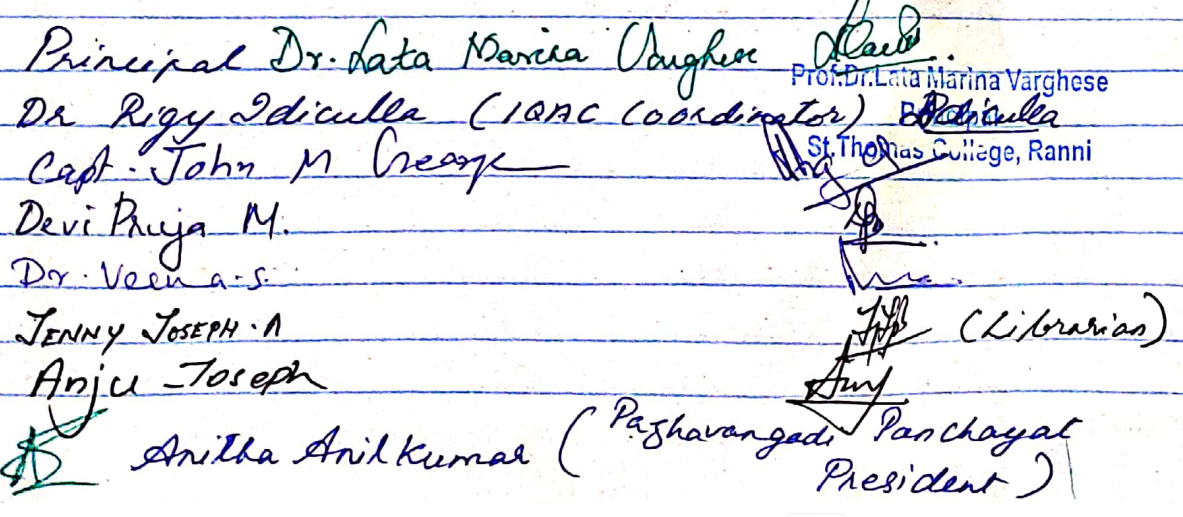 Principal Dr. Lata Marina Varghese
Prof.Dr.Lata Marina Varghese
Dr Rigy Idiculla (IQAC Coordinator) Idiculla
St.Thomas College, Ranni
Capt. John M George
Devi Priya M.
Dr. Veena.S.
JENNY JOSEPH.A (Librarian)
Anju Joseph Anj
Anitha Anilkumar (Pazhavangadi Panchayat
President)